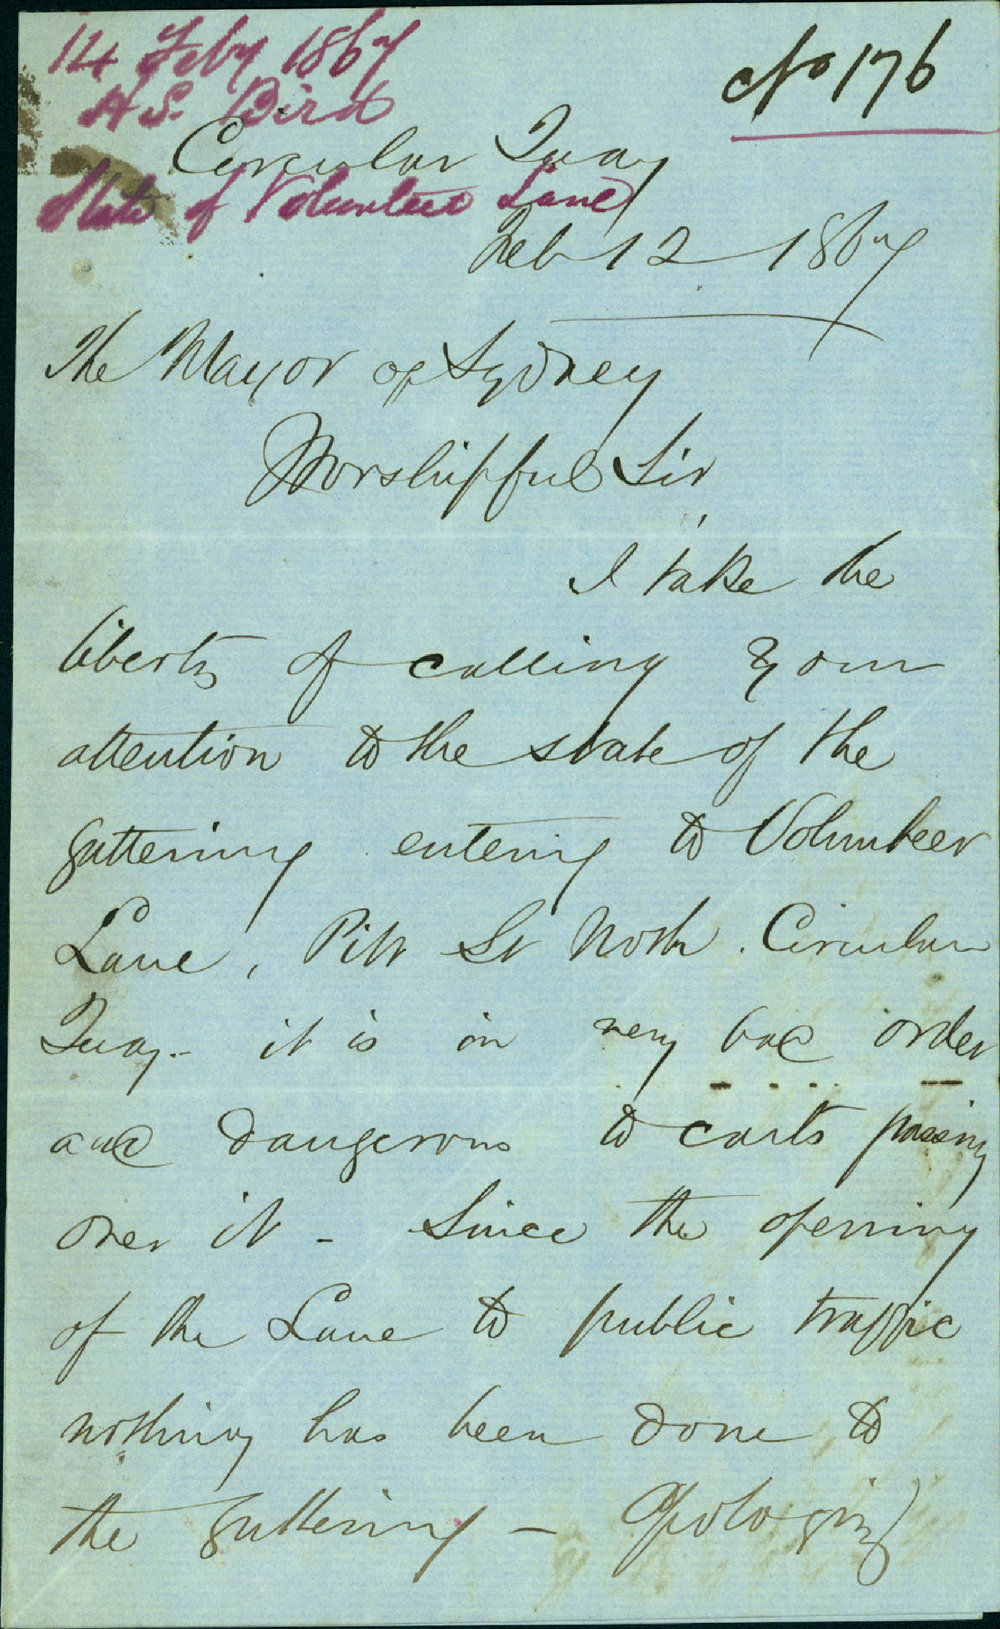 14 Feby 1867
No 176
H S. Bird
Circular Quay
State of Volunteer Lane
Feb 12 1867
The Mayor of Sydney
Worshipful Sir
I take the
liberty of calling your
attention to the state of the
guttering entering to Volunteer
Lane, Pitt St North. Circular
Quay - it is in very bad order
and dangerous to carts passing
over it - Since the opening
of the Lane to public traffic
nothing has been done to
the guttering - Apologizing